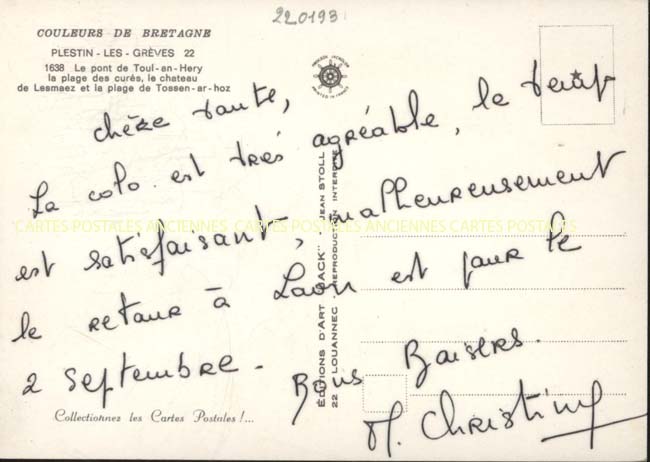 220193
COULEURS DE BRETAGNE
PLESTIN - LES - GRÈVES 22
1638 Le pont de Toul-an-Hery
la plage des curés, le chateau
de Lesmaez et la plage de Tossen-ar-hoz
chère tante,
La colo est très agréable, le temps
est satisfaisant, malheureusement
le retour à Laon est pour le
2 septembre.
Bons Baisers.
M. Christine
CARTES POSTALES ANCIENNES CARTES POSTALES ANCIENNES CARTES POSTALES ANCIENNES
ÉDITIONS D'ART "JACK" JEAN STOLL
22 - LOUANNEC - REPRODUCTION INTERDITE
Collectionnez les Cartes Postales !...